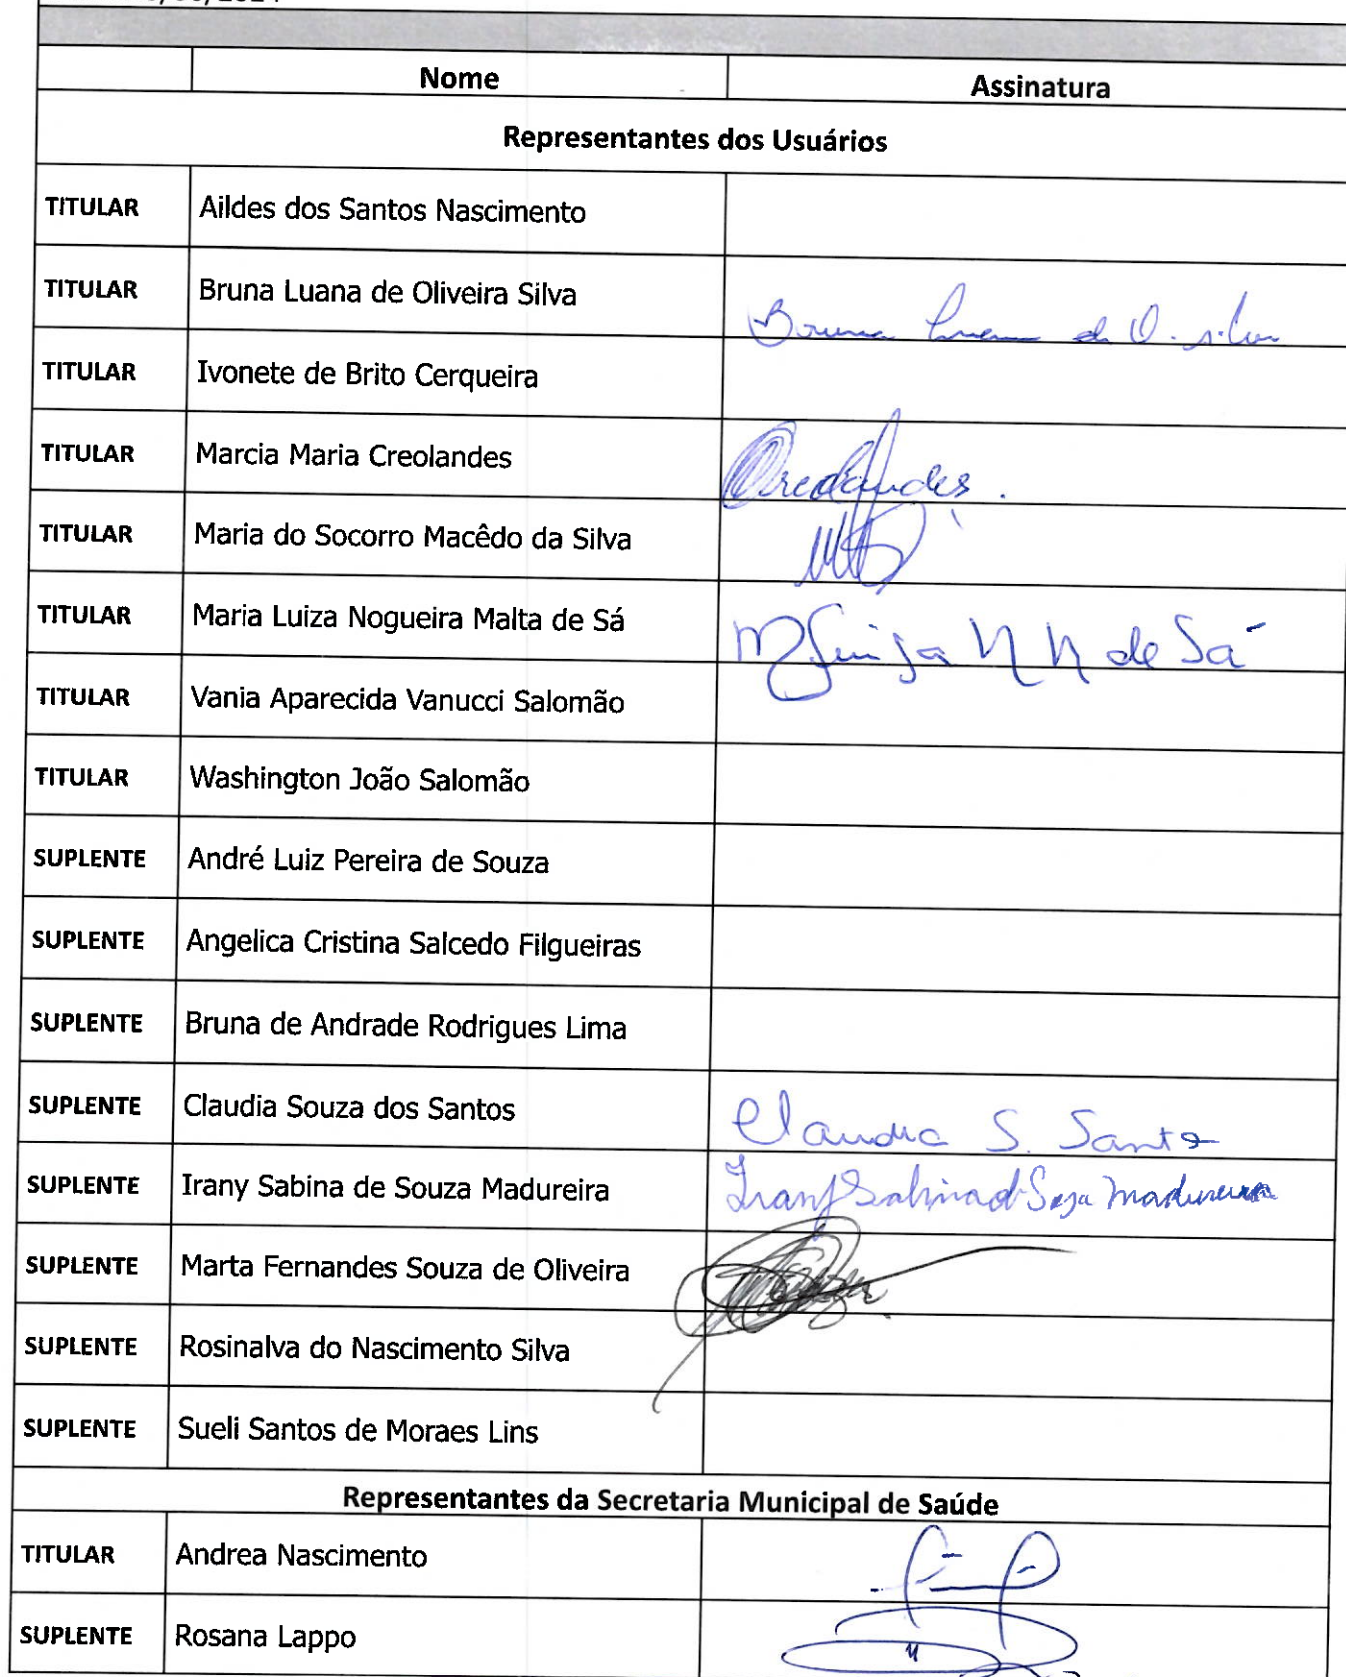 Nome Assinatura
Representantes dos Usuários
TITULAR Aildes dos Santos Nascimento
TITULAR Bruna Luana de Oliveira Silva Bruna Luana de O. Silva
TITULAR Ivonete de Brito Cerqueira
TITULAR Marcia Maria Creolandes Creolandes.
TITULAR Maria do Socorro Macêdo da Silva
TITULAR Maria Luiza Nogueira Malta de Sá M Luiza N M de Sá
TITULAR Vania Aparecida Vanucci Salomão
TITULAR Washington João Salomão
SUPLENTE André Luiz Pereira de Souza
SUPLENTE Angelica Cristina Salcedo Filgueiras
SUPLENTE Bruna de Andrade Rodrigues Lima
SUPLENTE Claudia Souza dos Santos Claudia S. Santos
SUPLENTE Irany Sabina de Souza Madureira Irany Sabina d Souza Madureira
SUPLENTE Marta Fernandes Souza de Oliveira
SUPLENTE Rosinalva do Nascimento Silva
SUPLENTE Sueli Santos de Moraes Lins
Representantes da Secretaria Municipal de Saúde
TITULAR Andrea Nascimento
SUPLENTE Rosana Lappo